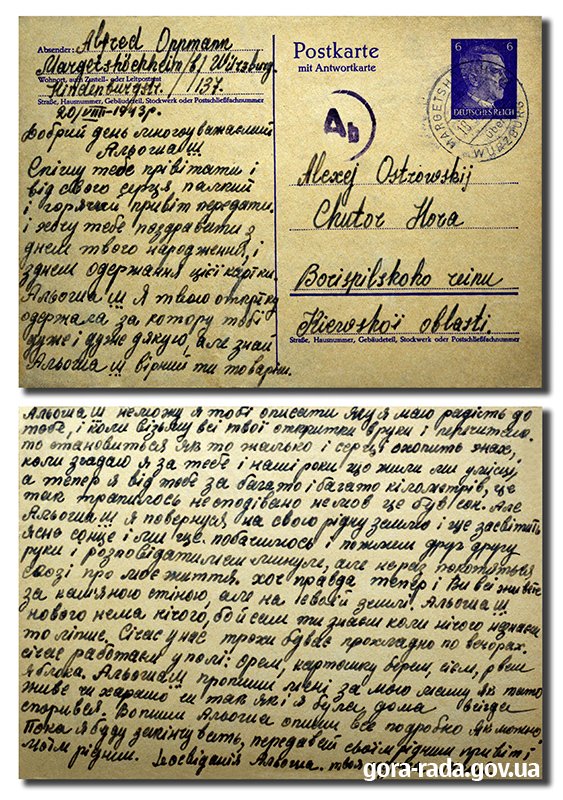 Absender: Alfred Oppmann
Margetshöchheim/b/Würzburg.
Wohnort, auch Zustell- oder Leitpostamt
Hindenburgstr. /137.
Straße, Hausnummer, Gebäudeteil, Stockwerk oder Postschließfachnummer
20/VIII-1943р.
Добрий день многоуважаємий
Альоша!!!
Спішу тебе привітати і
від свого серця палкий
і горячий привіт передати.
і хочу тебе поздравити з
днем твого народження, і
зднем одержання цієї картки.
Альоша!!! Я твою открітку
одержала за котору тобі
дуже і дуже дякую, але знай
Альоша!!! вірний ти товариш.
Postkarte
mit Antwortkarte
6 6
DEUTSCHES REICH
MARGETSH
über
WÜRZBURG
Ab
Alexej Ostrowskij
Chutor Hora
Borispilskoho
Kiewskoï oblasti.
Straße, Hausnummer, Gebäudeteil, Stockwerk oder Postschließfachnummer
Альоша!!! неможу я тобі описати яку я маю радість до
тебе, і коли візьму всі твої откритки вруки і перечитаю.
то становиться як то жалько і серце охопить
коли згадаю я за тебе і наші роки що жили ми улісці,
а тепер я від тебе за багато і багато кілометрів, це
так трапилось несподівано немов це був сон. Але
Альоша!!! я повернуся на свою рідну землю і ще засвітить
ясне сонце і ми ще побачимось і пожмем друг другу
руки і розповідатимем минуле, але нераз покотяться
сльозі про моє життя. хоч правда тепер і Ви всі живете
за камяною стіною, але на своєй землі. Альоша!!!
нового нема нічого, бо й сам ти знаєш коли нічого незнаєш
то ліпше. Січас у нас трохи буває прохладно по вечорах.
січас работаєм у полі: орем, картошку берем, сієм, рвем
яблока. Альоша!!! пропиши мені за мою мамку як
живе чи харашо чи так як і я була дома всігда
спорився. Вопшим Альоша опиши все подробно як можно
Пока я буду закінчувать, передавай своїм рідним привіт і
моїм рідним. Досвіданія Альоша.
gora-rada.gov.ua